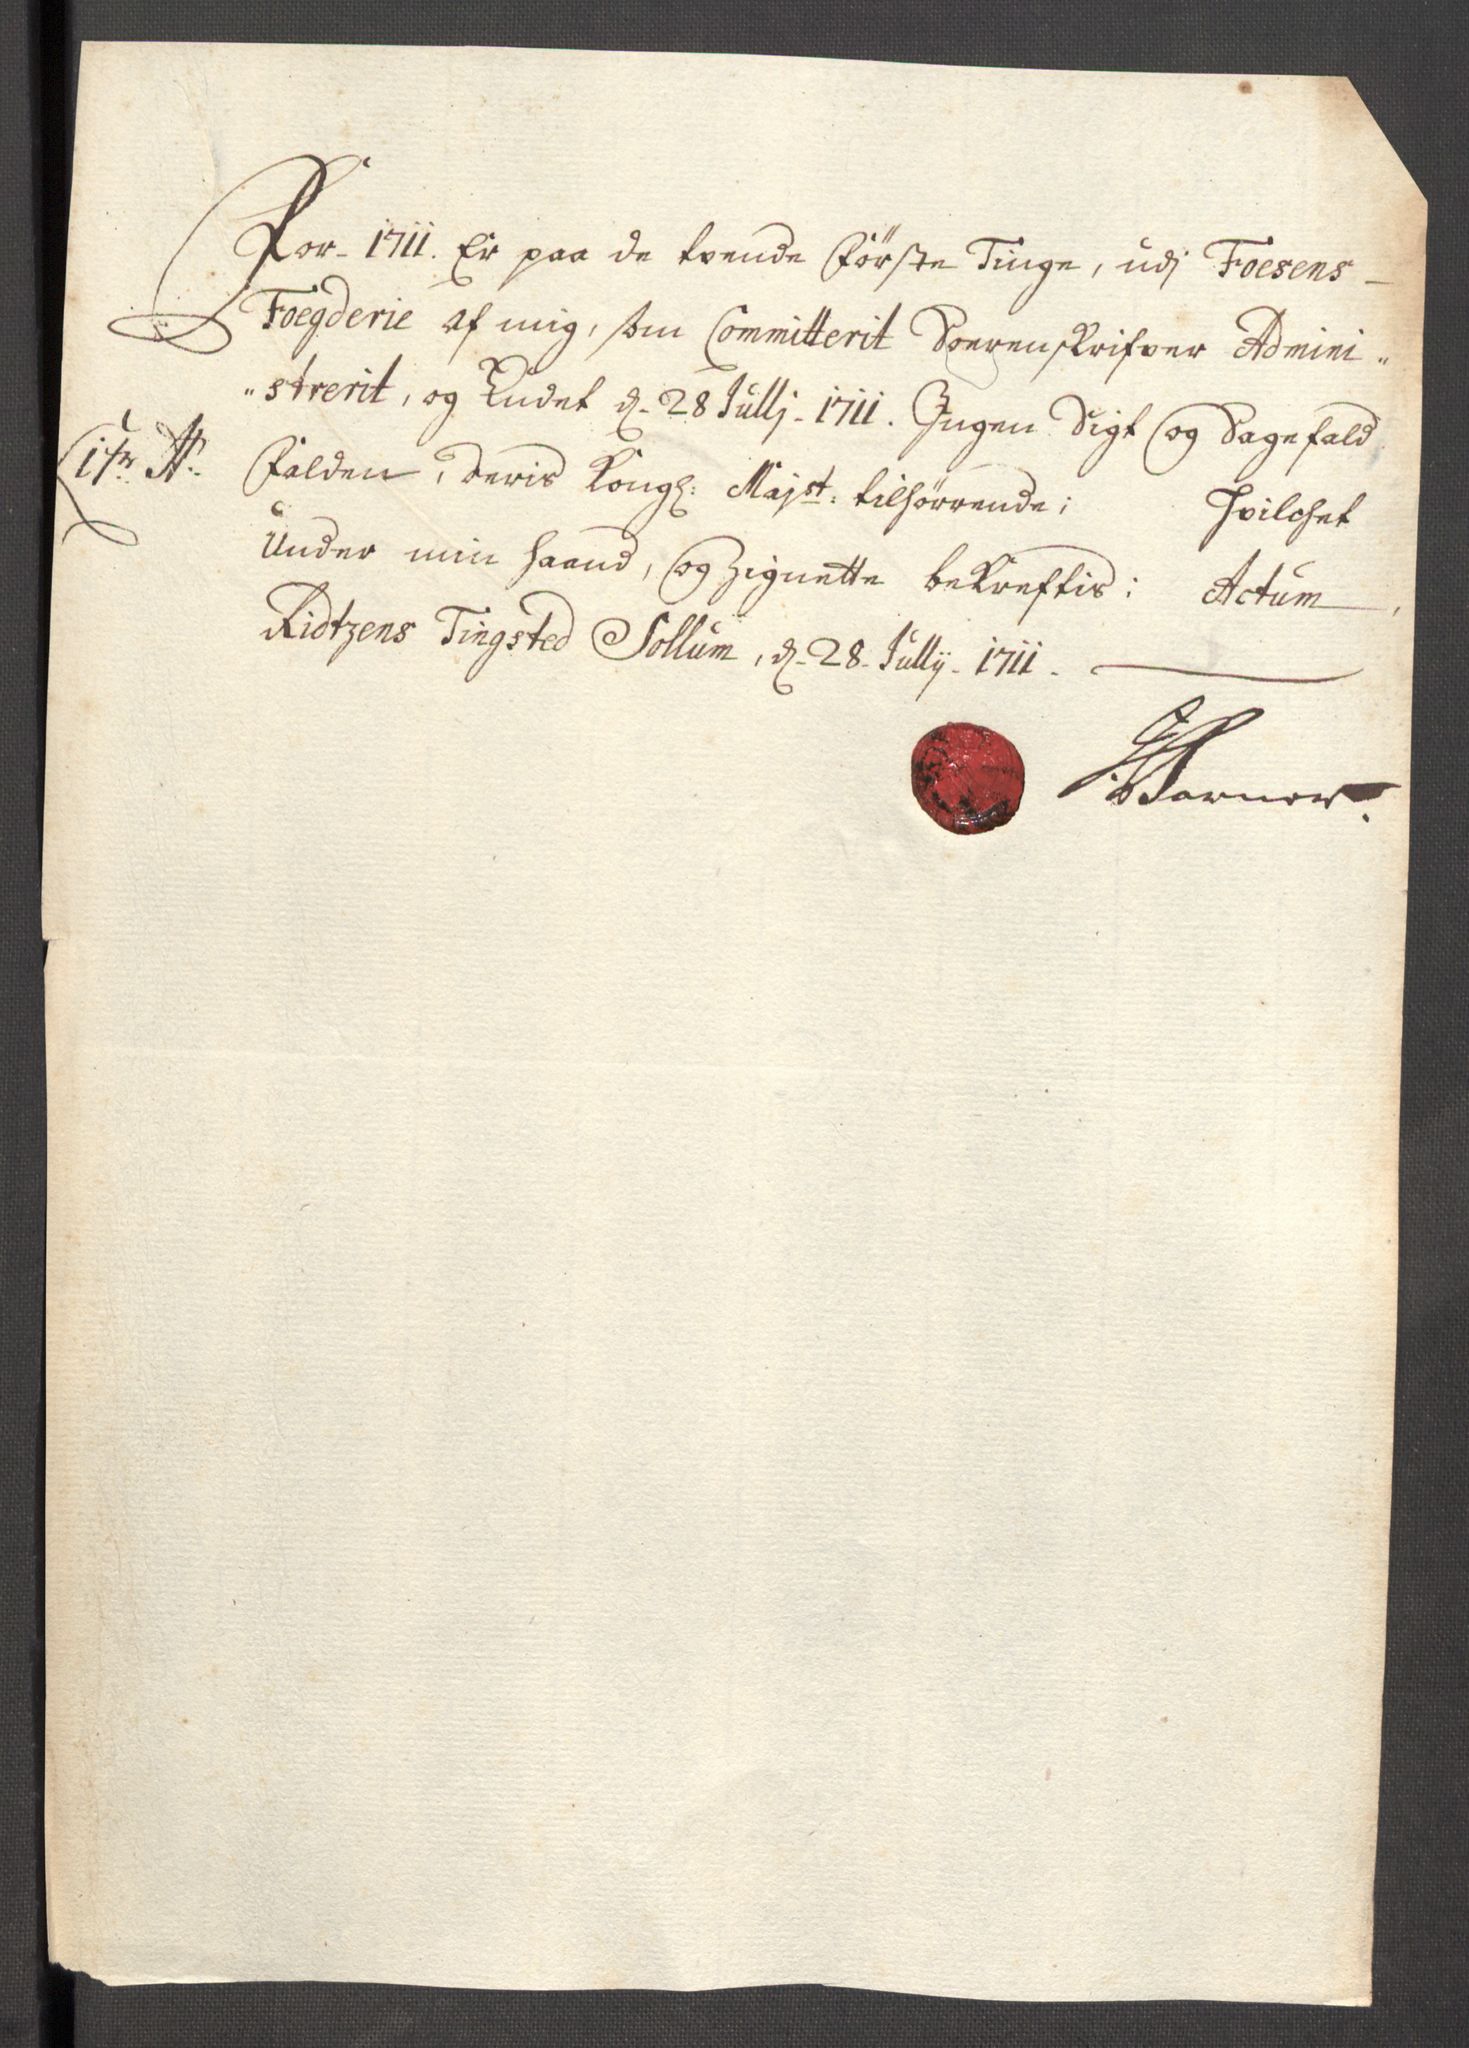 For 1711. Er paa de tvende förste Tinge, udj Foesens
Foegderie af mig, som Committerit Sorenskrifver Admini„
„strerit, og Endet d. 28 Jullj 1711. Ingen Sigt og Sagefald
falden, deris Kongl: Majst: tilhörrende; Hvilchet
Under min haand, og Zignette bekreftis: Actum
Ridtzens Tingsted Sollum, d. 28. Jullij 1711.